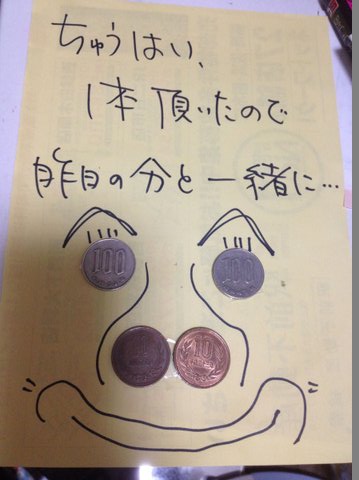 ちゅうはい、
1本頂いたので
昨日の分と一緒に…
100
100
10